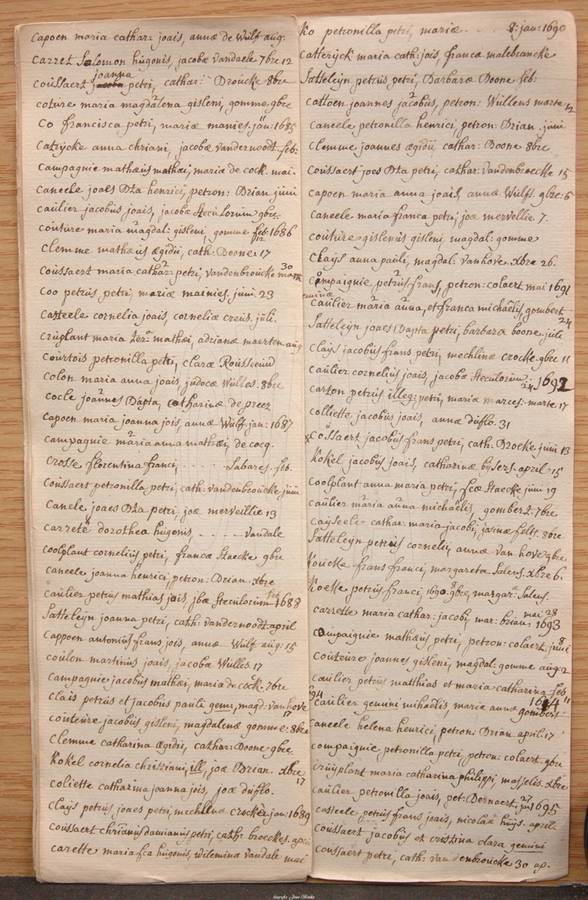 capoen maria cathar: joais, annæ de Wulf aug.
carret Salomon hugonis, jacobæ vandaele 7bre 12
joanna
coussaert petri, cathar: Droucke 8bre
coture maria magdalena gisleni, gomme gbre
Co francisca petri, mariæ manies. jan: 1685
catrycke anna chriani, jacobæ vandernoodt. feb:
campagnie mathæus mathæi, maria de cock. mai.
caneele joaes Bta henrici, petron: Brian juni
caulier jacobus joais, jacobæ Steculorum gbre
couture maria magdal: gisleni, gomme feb: 1686
clemme mathæus ægidii, cath: Boone 17
coussaert maria cathar: petri, vandenbroucke 30 martii
Coo petrus petri, mariæ mainies, juni. 23
casteele cornelia joais, corneliæ creus. juli.
cruplant maria mathæi, adrianæ maerten aug
courtois petronilla petri, claræ Rousseeuw
colon maria anna joais, judocæ Wulles. 8bre
cocle joannes Bapta, catharinæ de preez
capoen maria joanna joais, annæ Wulf. jan: 1687
campagnie maria anna mathæi, de cocq.
crosse florentina franci, . . . . . Labares. feb.
coussaert petronilla petri, cath: vandenbroucke juni
Canele joaes Bta petri, joæ merveillie 13
carrette dorothea hugonis, . . . . . Vandale
coolplant cornelius petri, francæ Staecke gbre
caneele joanna henrici, petron: Brian. xbre
caulier petrus mathias joais, jbæ Steculorum feb 1688
Catteleyn joanna petri, cath: vandernoodt april
cappoen antonius frans joais, annæ Wulf aug: 15
coulon martinus joais, jacobæ Wulles 17
campagnie jacobus mathæi, maria de cock. 7bre
clais petrus et jacobus pauli gemi, magd: vanhove 17
couteure jacobus gisleni, magdalenæ gomme: 8bre
clemme catharina ægidii, cathar: Boone gbre
Kokel cornelia christiani, ill, joæ Brian. xbre 17
coliette catharina joanna joais, joæ duflo.
clays petrus, joaes petri, mechlina crocke jan: 1689
coussaert chrianus damianus petri, cath: broeckes. april
carette maria fca hugonis, wilemina vandale mai
Ko petronilla petri, mariæ . . . . 8: jan: 1690
catterijck maria cath: jois, franca malebrancke
Catteleyn petrus petri, Barbaræ Boone feb:
catloen joannes jacobus, petron: Wullens marte 12
caneele petronilla henrici, petron: Brian. juni
clemme joannes ægidii, cathar: Boone 8bre
coussaert joes Bta petri, cathar: vandenbroecke 15
capoen maria anna joais, annæ Wulf. gbre: 6
caneele maria franca petri, joæ mervellie 7.
couture gislenus gisleni, magdal: gomme
clays anna pauli, magdal: vanhove. xbre 26.
compaignie petrus frans, petron: colaert mai 1691
caulier maria anna, et franca michaelis, gombert 24
Catteleyn joaes Bapta petri, barbaræ boone julii
clays jacobus frans petri, mechlinæ crocke gbre 11
caulier cornelius joais, jacobæ Steculorium 24 1692
carton petrus illeg: petri, maria marces. marte 17
colliette jacobus joais, annæ duflo. 31
coussaert jacobus frans petri, cath: Brocke. juni 13
Kokel jacobus joais, catharinæ bysers. april - 15
coolplant anna maria petri, fcæ Staecke juni 19
caulier maria anna michaelis, gombert 7bre
cayseele cathar: maria jacobi, jasinæ felt. 8bre
Catteleyn petrus cornelii, annæ van hove gbre
Koucke frans franci, margareta Saleus. xbre 6.
Koeske petrus franci, 1690. 8 gbre, margar: Saleus.
carrette maria cathar: jacobi, mar: brian: mai 28 1693
compaignie mathæus petri, petron: colaert. juni
couteure joannes gisleni, magdal: gomme aug: 2
caulier petrus matthias et maria catharina feb
1694
caulier gemini michaelis, mariæ annæ gombert
caneele helena henrici, petron: Brian april 17
compaignie petronilla petri, petron: colaert. gbre
cruyplant maria catharina philippi, masselis. xbre
caulier petronilla joais, pet: Bernaert, jan 1695
casteele petrus frans joais, nicolaæ huys. april.
coussaert jacobus et cristina clara gemini
coussaert petri, cath: vandenbroucke 30 ap.